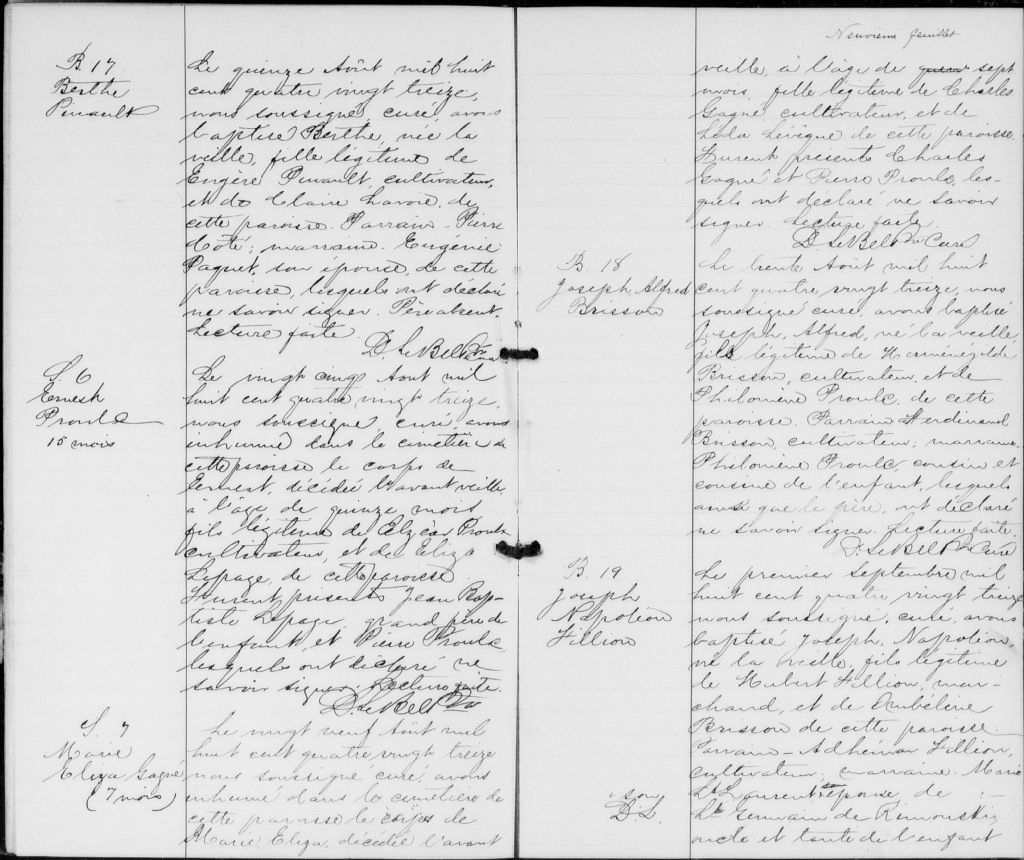 B 17
Berthe
Pinault
Le quinze Août mil huit
cent quatre vingt treize,
nous soussigné, curé, avons
baptisé Berthe, née la
veille, fille légitime de
Eugère Pinault, cultivateur,
et de Claire Lavoie, de
cette paroisse. Parrain - Pierre
Côté; marraine. Eugénie
Paquet, son épouse, de cette
paroisse, lesquels ont déclaré
ne savoir signer. Père absent.
Lecture faite.
D. LeBel Ptre Curé
S. 6
Ernest
Proulx
15 mois
Le vingt cinq Aout mil
huit cent quatre vingt treize,
nous soussigné, curé, avons
inhumé dans le cimetière de
cette paroisse le corps de
Ernest, décédé l'avant veille,
à l'âge de quinze mois
fils légitime de Elzéar Proulx
cultivateur, et de Eliza
Lepage, de cette paroisse.
Furent présents Jean Bap-
tiste Lepage, grand père de
l'enfant, et Pierre Proulx,
lesquels ont déclaré ne
savoir signer. Lecture faite.
D. LeBel Ptre
S. 7
Marie
Eliza Gagné
(7 mois)
Le vingt neuf Août mil
huit cent quatre vingt treize
nous soussigné curé, avons
inhumé dans le cimetière de
cette paroisse le corps de
Marie Eliza, décédée l'avant
Neuvième feuillet
veille, à l'âge de sept
mois, fille légitime de Charles
Gagné, cultivateur, et de
Léda Lévêque de cette paroisse.
Furent présents Charles
Gagné et Pierre Proulx, les-
quels ont déclaré ne savoir
signer. Lecture faite.
D. LeBel Ptre Curé
B. 18
Joseph Alfred
Brisson
Le trente Août mil huit
cent quatre vingt treize, nous
soussigné curé, avons baptisé
Joseph, Alfred, né la veille,
fils légitime de Herménégilde
Brisson, cultivateur, et de
Philomène Proulx, de cette
paroisse. Parrain Ferdinand
Brisson, cultivateur; marraine
Philomène Proulx, cousin et
cousine de l'enfant, lesquels
ainsi que le père, ont déclaré
ne savoir signer. Lecture faite.
D. LeBel Ptre Curé
B. 19
Joseph
Napoléon
Fillion
Le premier Septembre mil
huit cent quatre vingt treize
nous soussigné, curé, avons
baptisé Joseph, Napoléon,
né la veille, fils légitime
de Hubert Fillion, mar-
chand, et de Ombéline
Brisson de cette paroisse.
Parrain - Adhémar Fillion,
cultivateur; marraine. Marie
St Laurent épouse de
St Germain de Rimouski,
oncle et tante de l'enfant
+ son
D. L.